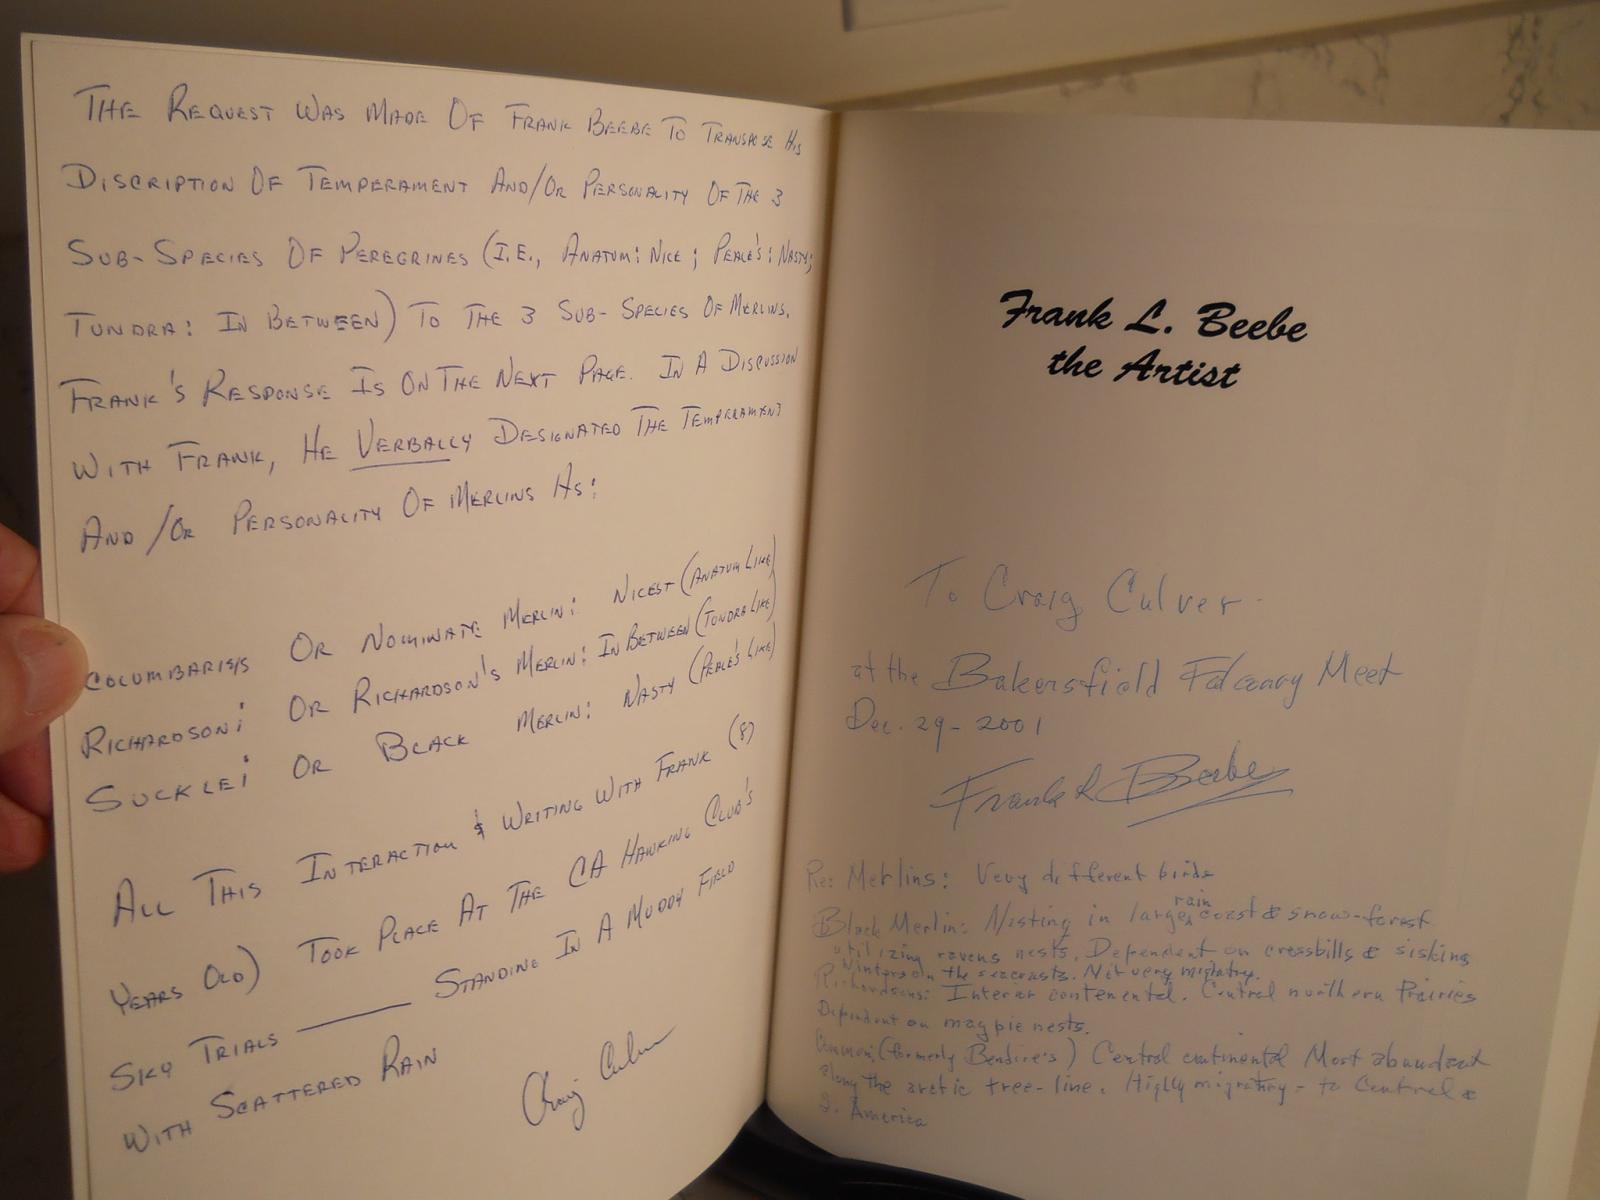 THE REQUEST WAS MADE OF FRANK BEEBE TO TRANSPOSE HIS
DISCRIPTION OF TEMPERAMENT AND/OR PERSONALITY OF THE 3
SUB-SPECIES OF PEREGRINES (I.E., ANATUM: NICE; PEALE'S: NASTY;
TUNDRA: IN BETWEEN) TO THE 3 SUB-SPECIES OF MERLINS.
FRANK'S RESPONSE IS ON THE NEXT PAGE. IN A DISCUSSION
WITH FRANK, HE VERBALLY DESIGNATED THE TEMPERAMENT
AND/OR PERSONALITY OF MERLINS AS:
COLUMBARIUS OR NOMINATE MERLIN: NICEST (ANATUM LIKE)
RICHARDSONI OR RICHARDSON'S MERLIN: IN BETWEEN (TUNDRA LIKE)
SUCKLEI OR BLACK MERLIN: NASTY (PEALE'S LIKE)
ALL THIS INTERACTION & WRITING WITH FRANK (8)
YEARS OLD) TOOK PLACE AT THE CA HAWKING CLUB'S
SKY TRIALS STANDING IN A MUDDY FIELD
WITH SCATTERED RAIN
Craig Culver
Frank L. Beebe
the Artist
To Craig Culver -
at the Bakersfield Falconry Meet
Dec. 29 - 2001
Frank L Beebe
Re: Merlins: Very different birds
Black Merlin: Nesting in large, rain coast & snow-forest
utilizing ravens nests. Dependent on crossbills & siskins
Winters on the seacoasts. Not very migratry.
Richardsons: Interior contenental. Central northern Prairies
Dependent on magpie nests.
Common: (formerly Bendire's) Central continental Most abundant
along the arctic tree-line. Highly migratory - to Central &
S. America